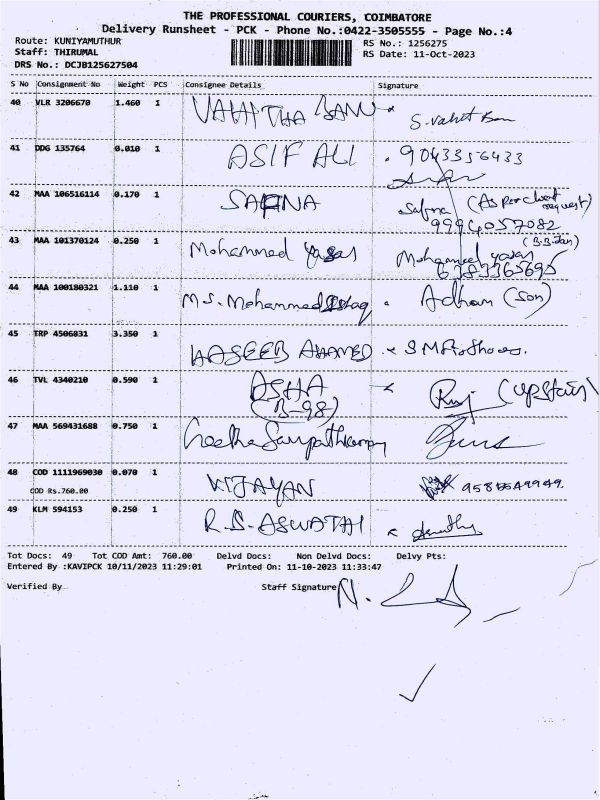 THE PROFESSIONAL COURIERS, COIMBATORE
Delivery Runsheet - PCK - Phone No.:0422-3505555 - Page No.:4
Route: KUNIYAMUTHUR
Staff: THIRUMAL
DRS No.: DCJB125627504
RS No.: 1256275
RS Date: 11-Oct-2023
S No Consignment No Weight PCS Consignee Details Signature
40 VLR 3206670 1.460 1 VAHITHA BANU
41 DDG 135764 0.010 1 ASIF ALI 9043356433
42 MAA 106516114 0.170 1 SAFNA Safna (As per client request)
9994057082
43 MAA 101370124 0.250 1 Mohammed Yasar Mohammed Yasar
6383365695
44 MAA 100180321 1.110 1 M.S. Mohammed Ishaq Adham (Son)
45 TRP 4506831 3.350 1 HASEEB AHAMED
46 TVL 4340210 0.590 1 ASHA (Upstair)
(B-98)
47 MAA 569431688 0.750 1 Geetha
48 COD 1111969030 0.070 1 VIJAYAN
COD Rs.760.00
49 KLM 594153 0.250 1 R.S. ASWATHI
Tot Docs: 49 Tot COD Amt: 760.00 Delvd Docs: Non Delvd Docs: Delvy Pts:
Entered By :KAVIPCK 10/11/2023 11:29:01 Printed On: 11-10-2023 11:33:47
Verified By Staff Signature